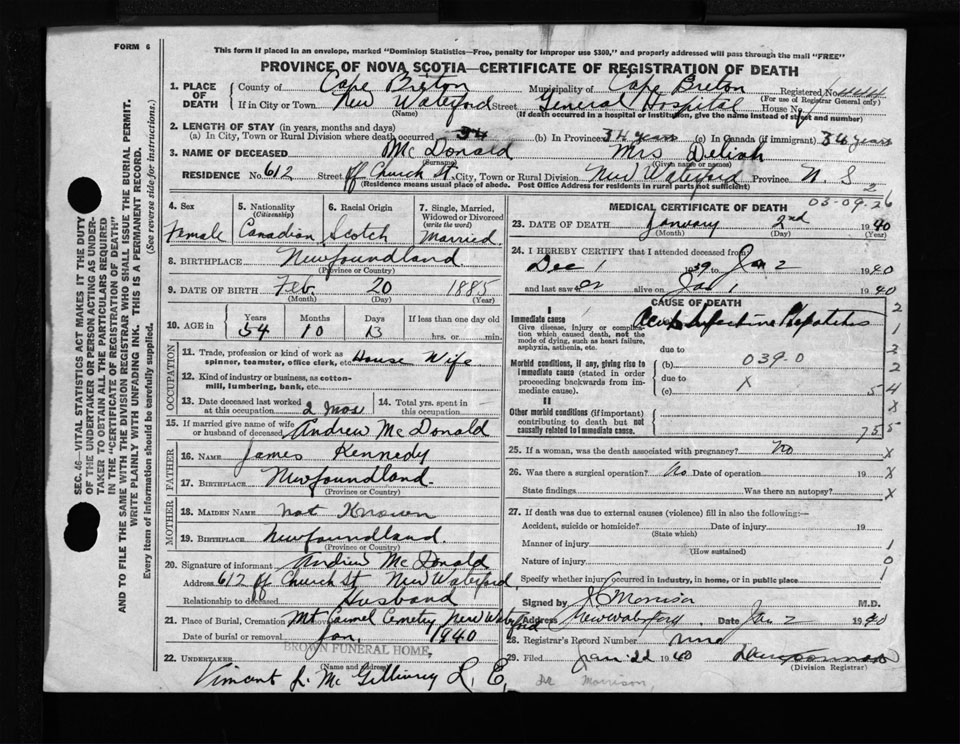 FORM 6
This form if placed in an envelope, marked "Dominion Statistics—Free, penalty for improper use $300," and properly addressed will pass through the mail "FREE"
PROVINCE OF NOVA SCOTIA—CERTIFICATE OF REGISTRATION OF DEATH
1. PLACE OF DEATH County of Cape Breton Municipality of Cape Breton Registered No. 444
(For use of Registrar General only)
If in City or Town New Waterford Street General Hospital House No.
(Name) (If death occurred in a hospital or Institution, give the name instead of street and number)
2. LENGTH OF STAY (in years, months and days)
(a) In City, Town or Rural Division where death occurred 34 (b) In Province 34 years (c) In Canada (if immigrant) 34 years
3. NAME OF DECEASED McDonald Mrs Deliah
(Surname) (Given name or names)
RESIDENCE No. 612 Street off Church St. City, Town or Rural Division New Waterford Province N S
(Residence means usual place of abode. Post Office Address for residents in rural parts not sufficient)
2
03-09.26
4. Sex Female
5. Nationality (Citizenship) Canadian
6. Racial Origin Scotch
7. Single, Married, Widowed or Divorced (write the word) Married
8. BIRTHPLACE Newfoundland
(Province or Country)
9. DATE OF BIRTH Feb. 20 1885
(Month) (Day) (Year)
10. AGE in Years Months Days If less than one day old
54 10 13 hrs. or min.
OCCUPATION
11. Trade, profession or kind of work as spinner, teamster, office clerk, etc. House Wife
12. Kind of industry or business, as cotton-mill, lumbering, bank, etc.
13. Date deceased last worked at this occupation 2 Mos
14. Total yrs. spent in this occupation -
15. If married give name of wife or husband of deceased Andrew McDonald
FATHER
16. NAME James Kennedy
17. BIRTHPLACE Newfoundland.
(Province or Country)
MOTHER
18. MAIDEN NAME not Known
19. BIRTHPLACE Newfoundland.
(Province or Country)
20. Signature of informant Andrew McDonald
Address 612 off Church St New Waterford.
Relationship to deceased Husband
21. Place of Burial, Cremation or Removal Mt Carmel Cemetery New Waterford
Date of burial or removal Jan. 1940
BROWN FUNERAL HOME.
22. UNDERTAKER
(Name and Address)
Vincent L. McGillivray L. E.
MEDICAL CERTIFICATE OF DEATH
23. DATE OF DEATH January 2nd 1940
(Month) (Day) (Year)
24. I HEREBY CERTIFY that I attended deceased from
Dec 1 1939 to Jan 2 1940
and last saw er alive on Jan 1 1940
CAUSE OF DEATH
I
Immediate cause Acute Infective Hepatitis
Give disease, injury or complication which caused death, not the mode of dying, such as heart failure, asphyxia, asthenia, etc.
due to
Morbid conditions, if any, giving rise to immediate cause (stated in order proceeding backwards from immediate cause).
(b) 039-0
due to X
(c) 5 4
II
Other morbid conditions (if important) contributing to death but not causally related to immediate cause.
755
2
1
3
2
X
25. If a woman, was the death associated with pregnancy? No X
26. Was there a surgical operation? No Date of operation 19 X
State findings Was there an autopsy? X
27. If death was due to external causes (violence) fill in also the following:—
Accident, suicide or homicide? Date of injury 19
(State which)
Manner of injury 1
(How sustained)
Nature of injury 0
Specify whether injury occurred in industry, in home, or in public place 1
Signed by Morrison M.D.
Address New Waterford. Date Jan 2 1940
28. Registrar's Record Number
29. Filed Jan 22 1940
(Division Registrar)
Dr Morrison,
SEC. 46—VITAL STATISTICS ACT MAKES IT THE DUTY
OF THE UNDERTAKER OR PERSON ACTING AS UNDER-
TAKER TO OBTAIN ALL THE PARTICULARS REQUIRED
IN THE "CERTIFICATE OF REGISTRATION OF DEATH"
AND TO FILE THE SAME WITH THE DIVISION REGISTRAR WHO SHALL ISSUE THE BURIAL PERMIT.
WRITE PLAINLY WITH UNFADING INK. THIS IS A PERMANENT RECORD.
Every item of information should be carefully supplied. (See reverse side for instructions.)